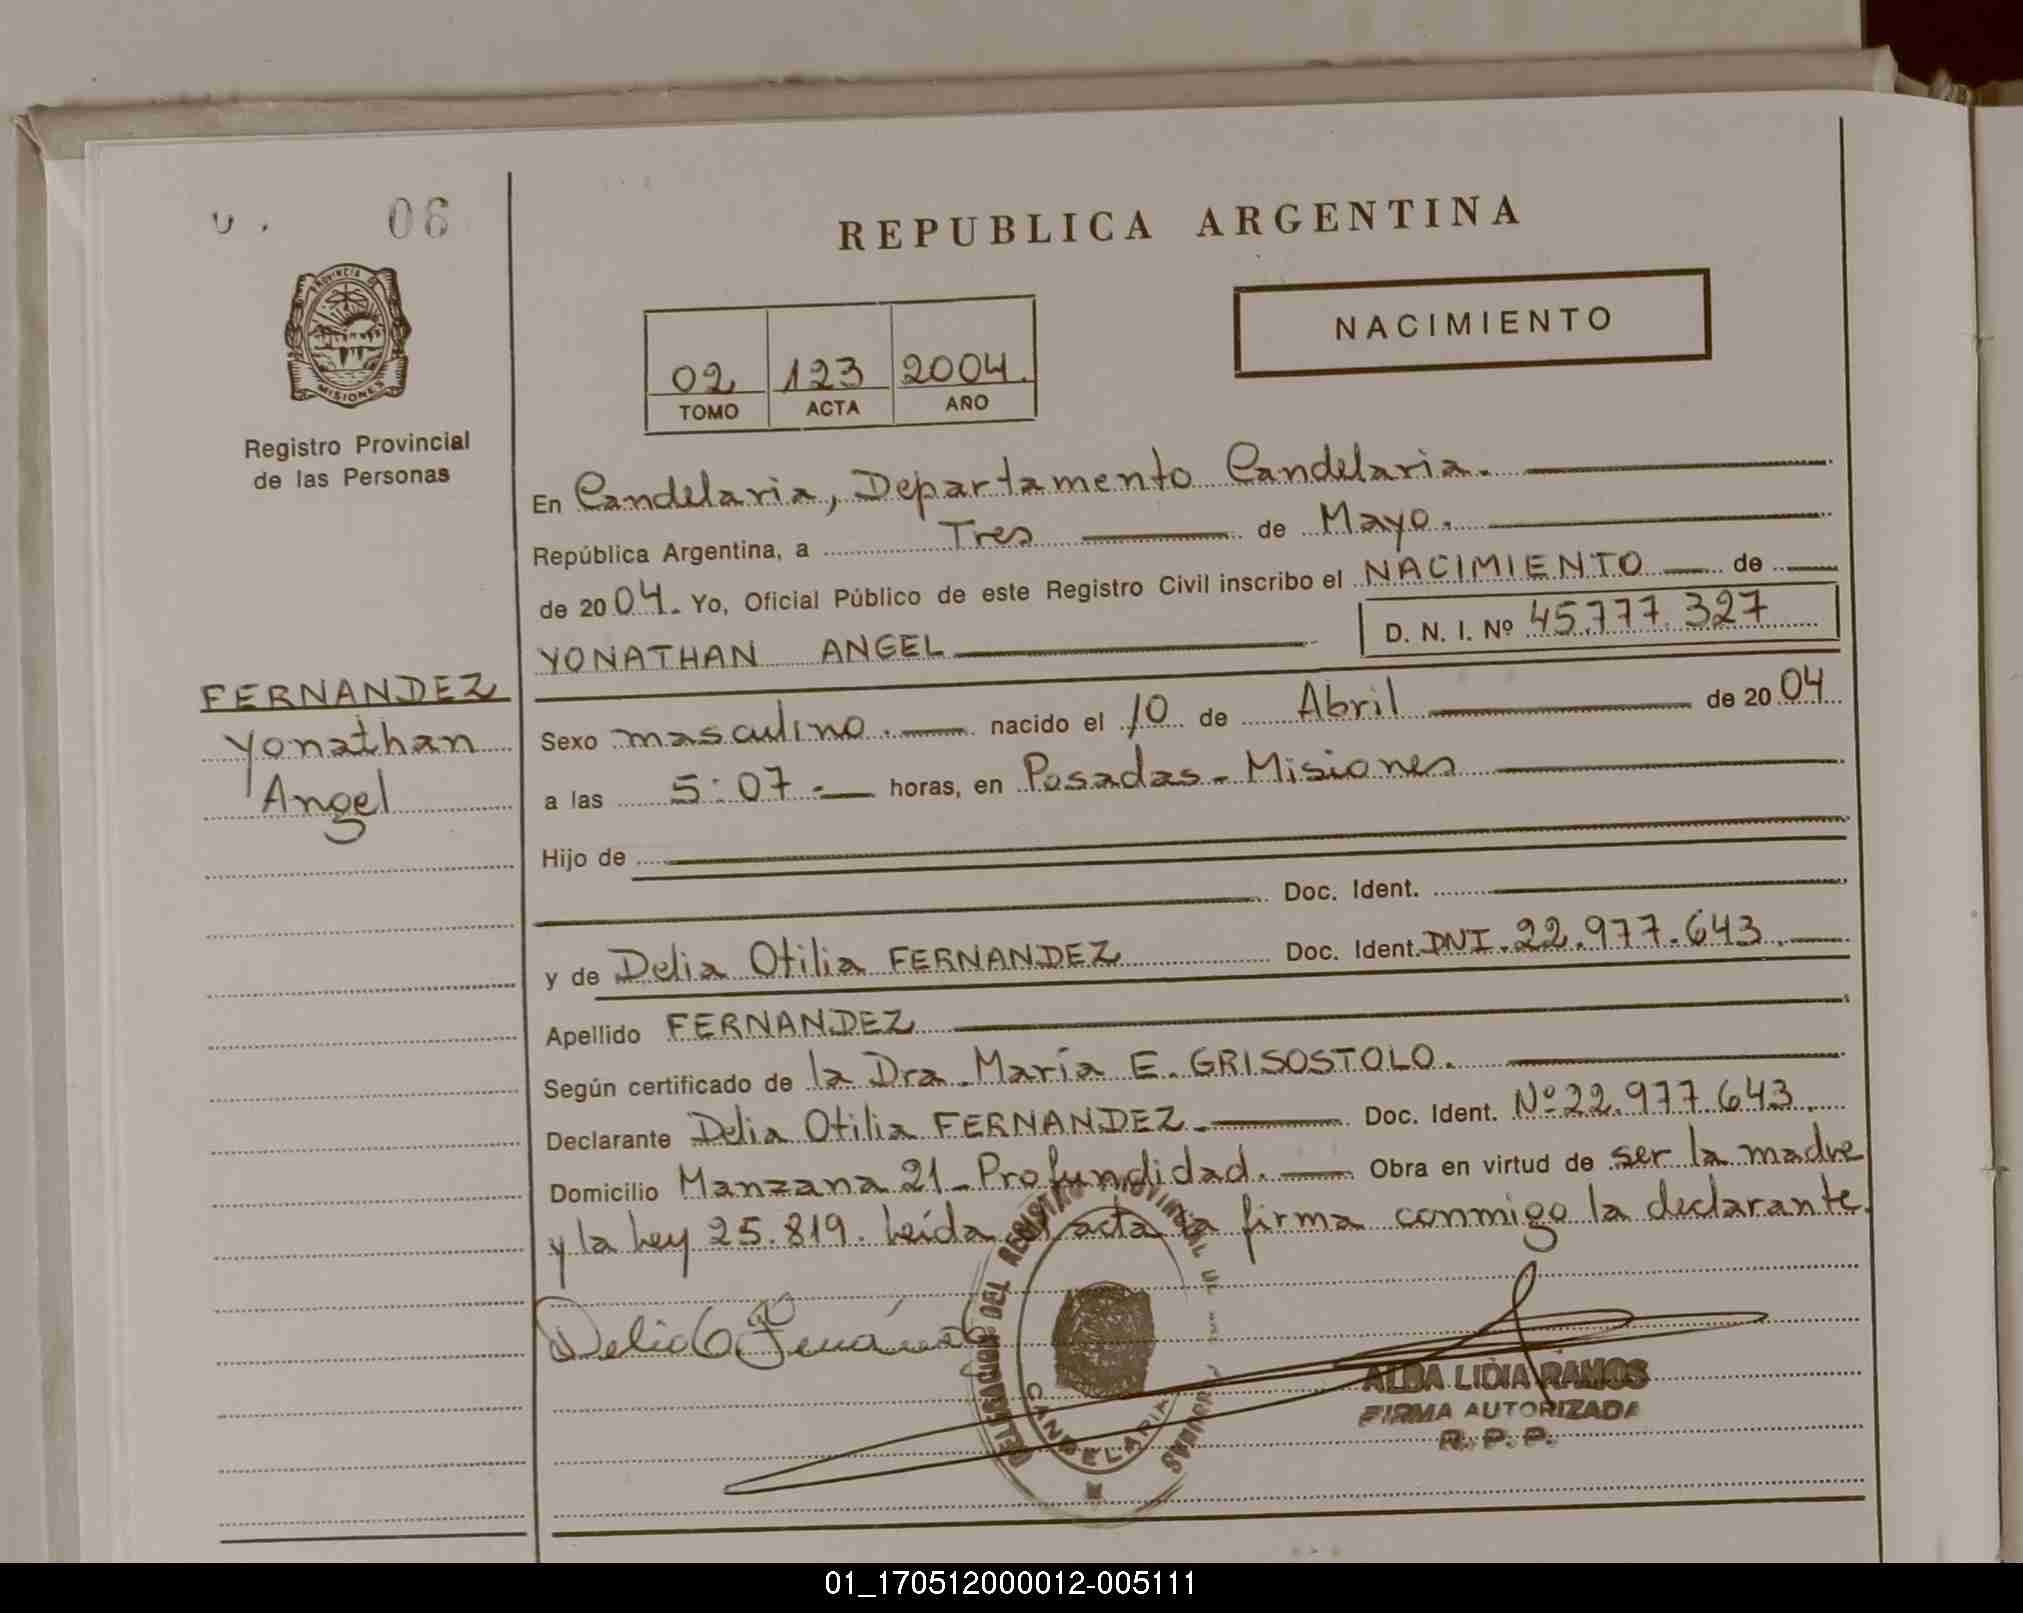 06
PROVINCIA DE
MISIONES
Registro Provincial
de las Personas
FERNANDEZ
Yonathan
Angel
REPUBLICA ARGENTINA
NACIMIENTO
02 123 2004
TOMO ACTA AÑO
En Candelaria, Departamento Candelaria.
República Argentina, a Tres de Mayo.
de 2004. Yo, Oficial Público de este Registro Civil inscribo el NACIMIENTO de
YONATHAN ANGEL D. N. I. Nº 45.777.327
Sexo masculino. nacido el 10 de Abril de 2004
a las 5:07.- horas, en Posadas - Misiones
Hijo de
Doc. Ident.
y de Delia Otilia FERNANDEZ Doc. Ident. DNI. 22.977.643.
Apellido FERNANDEZ
Según certificado de la Dra. María E. GRISOSTOLO.
Declarante Delia Otilia FERNANDEZ. Doc. Ident. Nº 22.977.643.
Domicilio Manzana 21 - Profundidad. Obra en virtud de ser la madre
y la Ley 25.819. Leída el acta la firma conmigo la declarante.
DELEGACION DEL REGISTRO PROVINCIAL DE
CANDELARIA
ALBA LIDIA RAMOS
FIRMA AUTORIZADA
R. P. P.
01_170512000012-005111